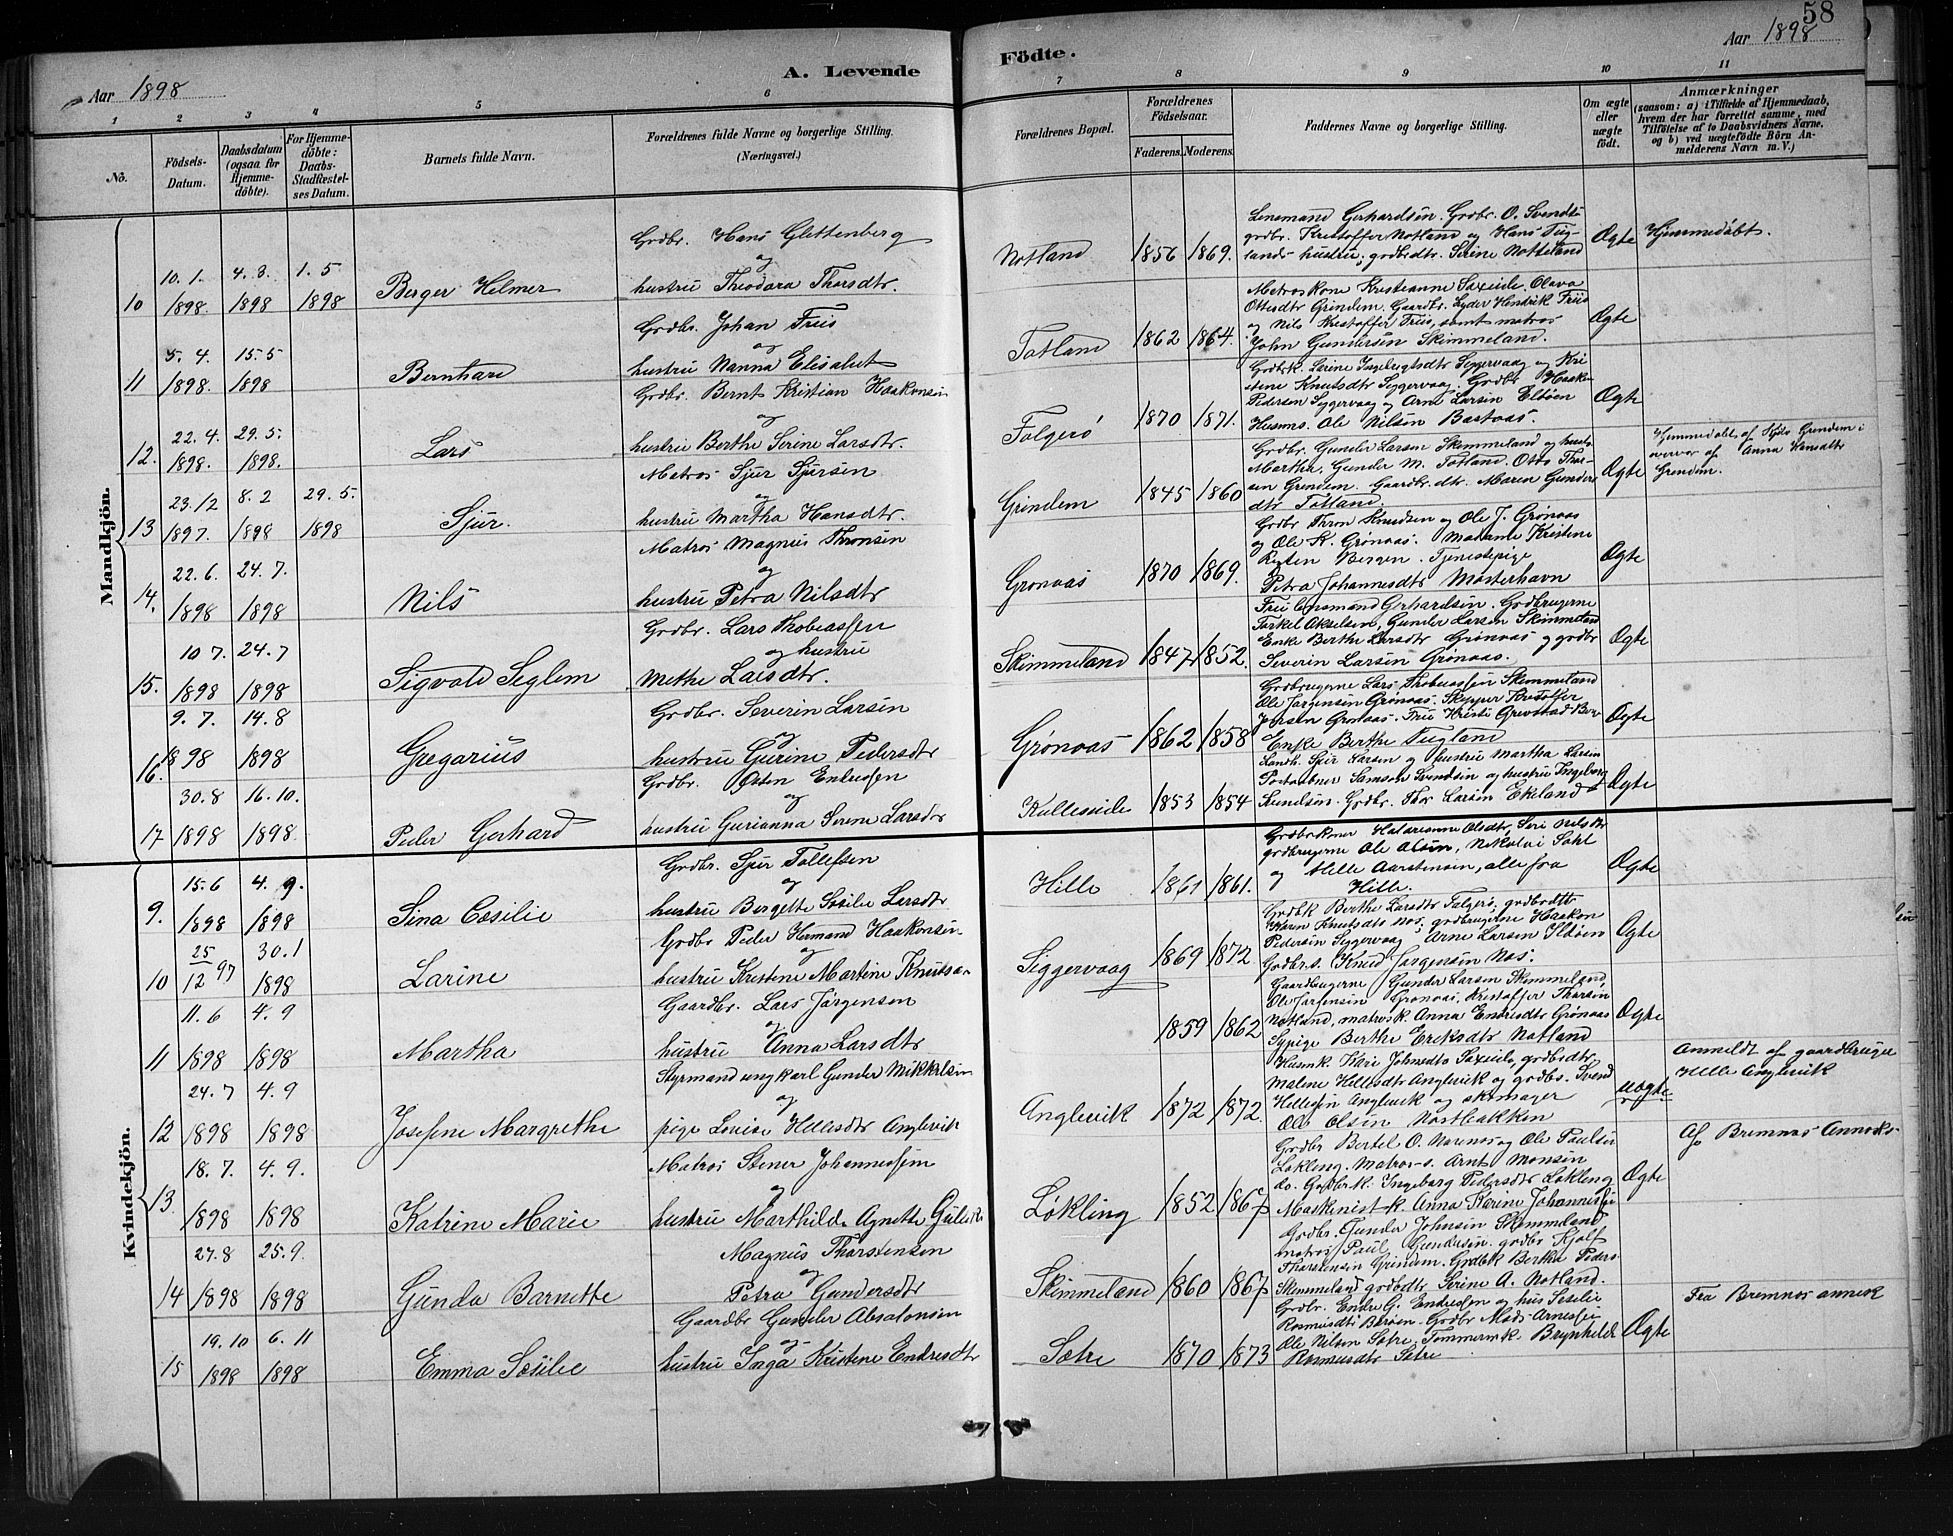 58
Aar 1898
A. Levende
Födte.
Aar 1898
1 2 3 4 5 6 7 8 9 10 11
No.
Födsels-
Datum.
Daabsdatum
(ogsaa for
Hjemme-
döbte).
For Hjemme-
döbte:
Daabs-
Stadfæstel-
ses Datum.
Barnets fulde Navn.
Forældrenes fulde Navne og borgerlige Stilling.
(Næringsvei.)
Forældrenes Bopæl.
Forældrenes
Födselsaar.
Faderens.
Moderens.
Faddernes Navne og borgerlige Stilling.
Om ægte
eller
uægte
født.
Anmærkninger
(saasom: a) i Tilfælde af Hjemmedaab,
hvem der har forrettet samme, med
Tilföielse af to Daabsvidners Navne,
og b) ved uægtefødte Börn An-
melderens Navn m. V.)
Mandkjön.
10
10. 1. 1898.
4. 3. 1898
1. 5 1898
Berger Helmer
Grdbr. Hans Glettenberg
og
hustru Theodora Thorsdtr.
Notland
1856 1869.
Lensmand Gerhardsen. Grdbr. O. Svends
grdbr. Kristoffer Notland og Hans Fug-
lands hustru; grdbrdtr. Serine Notteland
Ægte
Hjemmedøbt.
11
5. 4. 1898.
15. 5 1898
Bernhard
Grdbr. Johan Friis
og
hustru Nanna Elisabet
Totland
1862 1864.
Matroskone Kristianne Saxeide, Olava
Ottesdtr Grindem. Gaardbr. Lyder Hendrik Friis
og Nils Kristoffer Friis, samt matros
John Gundersen Skimmeland.
Ægte
12.
22. 4. 1898.
29. 5. 1898.
Lars
Grdbr. Bernt Kristian Haakonsen
og
hustru Berthe Serine Larsdtr.
Folgerø
1870 1871.
Grdbrk. Lerine Ingebrigtsdtr Siggervaag og Kri-
stene Knutsdtr Siggervaag. Grdbr Haakon
Pedersen Siggervaag og Arne Larsen Eltøen
Husms. Ole Nilsen Bastvaas.
Ægte
13
23. 12 1897.
8. 2 1898
29. 5. 1898
Sjur.
Matros Sjur Sjursen
og
hustru Martha Hansdtr.
Grindem
1845 1860
Grdbr. Gunder Larsen Skimmeland og hustr.
Martha, Gunder M. Totland. Otto Thor-
sen Grindem. Gaardbr. dtr. Maren Gunders
dtr Totland.
Ægte
Hjemmedøbt, af Hjels Grindem i
nærvær af Anna
Grindem.
14.
22. 6. 1898
24. 7. 1898
Nils
Matros Magnus Thronsen
og
hustru Petra Nilsdtr
Gronaas
1870 1869.
Grdbr Thron Knudsen og Ole J. Grønaas
og Ole K. Grønaas. Madame Kristine
Bergen. Tjenestepige
Petra Johannesdtr Mosterhavn
Ægte
15.
10 7. 1898
24. 7 1898
Sigvald Seglem
Grdbr. Lars Thobiassen
og hustru
Methe Larsdtr.
Skimmeland
1847 1852.
Frue Lensmand Gerhardsen. Grdbrugerne
Torkel Akselsen, Gunder Larsen Skimmeland
Enke Berthe Larsdtr Grønaas og grdbr
Severin Larsen Grønaas.
Ægte
16.
9. 7. 1898
14. 8 1898
Gregarius
Grdbr. Severin Larsen
og
hustru Gurine Pedersdtr
Grønaas
1862 1858
Grdbrugerne Lars Thobiassen Skimmeland
Ole Jørgensen Grønaas. Skypper Kristoffer
Jensen Grønaas. Frue Kristi Grevstad
Enke Berthe Fugland
Ægte
17
30. 8 1898
16. 10. 1898.
Peder Gerhard
Grdbr. Osten Endresen
og
hustru Gurianna Serene Larsdtr
Kulleseide
1853 1854
Landh. Sjur Larsen og hustru Martha Larsen
Postaabner Samson Svendsen og hustru Ingeborg
Svendsen. Grdbr. Thor Larsen Ekeland
Ægte
Kvindekjön.
9.
15. 6 1898
4. 9. 1898
Sina Cæsilie
Grdbr. Sjur Tollefsen
og
hustru Bergette Sesilie Larsdtr
Hille
1861 1861.
Grdbrkoner Katarianne Olsdtr, Seri Nilsdtr
grdbrugerne Ole Olsen, Nikolai Sohl
og Helle Aarstensen, alle fra
Hille.
Ægte
10
25 12 97
30. 1 1898
Larine
Grdbr Peder Hermand Haakonsen
og
hustru Kristene Martine Knutsd
Siggervaag
1869 1872
Grdbk Berthe Larsdtr Folgerø; grdbrdtr
Karen Knutsdtr Nos; grdbrugerne Haakon
Pedersen Siggervaag, Arne Larsen Eltøen
Grdbr. s. Knud Jørgensen Nos.
Ægte
11
11. 6 1898
4. 9 1898
Martha
Gaardbr. Lars Jørgensen
og
hustru Anna Larsdtr
1859 1862
Gaardbrugerne Gunder Larsen Skimmeland,
Ole Jørgensen Grønaas, Kristoffer Thorsen
Notland, matros k. Anna Endresdtr Grønaas
Sypige Berthe Eriksdtr Notland
Ægte
12
24. 7 1898
4. 9 1898
Josefine Margrethe
Styrmand ungkarl Gunder Mikkelsen
og
pige Lovise Hellesdtr Anglevik
Anglevik
1872 1872.
Husmk. Kari Johnsdtr Saxeide, grdbrdtr
Malene Hellesdtr Anglevik og grdbs. Svend
Hellesen Anglevik og skomager
Ole Olsen Nostbakken
uægte
Anmeldt af gaardbruger
Helle Anglevik
13.
18. 7. 1898
4. 9. 1898
Katrine Marie
Matros Stener Johannessen
og
hustru Marthilde Agnette
Løkling
1852 1867
Grdbr Bertel O. Nernos og Ole Paulsen
Løkling. Matros-s. Arnt Monsen
do. Grdbrk. Ingeborg Pedersdtr Løkling
Maskinist-k. Anna Karine Johannessen
Ægte
Af Bremnes Anneks
14
27. 8 1898
25. 9. 1898
Gunda Barnette
Magnus Thorstensen
og
Petra Gundersdtr
Skimmeland
1860 1867
Grdbr. Gunder Johnsen Skimmeland
matros Paul Gundersen. grdbr Kjøl
Thorstensen Grindem. Grdbk Berthe Peders
Skimmeland grdbrdtr Serine A. Notland.
15
19. 10 1898
6. 11 1898
Emma Sesilie
Gaardbr Gunder Absalonsen
og
hustru Inga Kristene Endresdtr
Sætre
1870 1873
Grdbr. Endre G. Endresen og hus Sesilie
Rasmusdtr Barøen. Grdbr Mads Arnessen
Ole Nilsen Sætre. Tømmermk. Brynhilde
Rasmusdtr Sætre
Ægte
Fra Bremnes annex